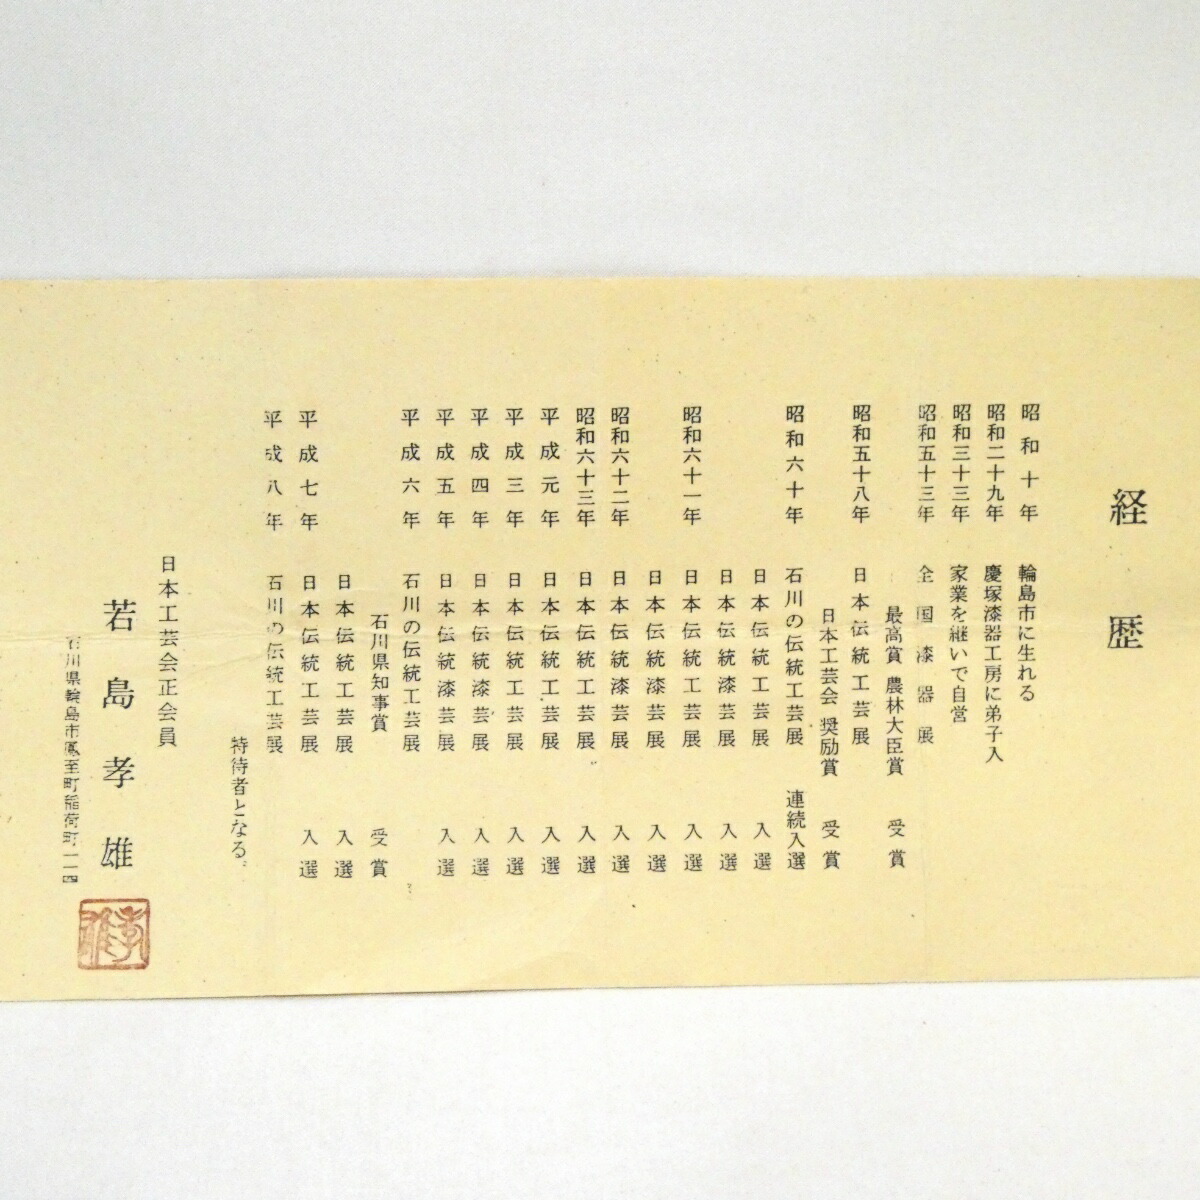 経歴
昭和十年 輪島市に生れる
昭和二十九年 慶塚漆器工房に弟子入
昭和三十三年 家業を継いで自営
昭和五十三年 全国漆器展
最高賞 農林大臣賞 受賞
昭和五十八年 日本伝統工芸展
日本工芸会 奨励賞 受賞
昭和六十年 石川の伝統工芸展 連続入選
日本伝統工芸展 入選
日本伝統漆芸展 入選
昭和六十一年 日本伝統工芸展 入選
日本伝統漆芸展 入選
昭和六十二年 日本伝統漆芸展 入選
昭和六十三年 日本伝統工芸展 入選
平成元年 日本伝統工芸展 入選
平成三年 日本伝統工芸展 入選
平成四年 日本伝統漆芸展 入選
平成五年 日本伝統漆芸展 入選
平成六年 石川の伝統工芸展
石川県知事賞 受賞
日本伝統工芸展 入選
平成七年 日本伝統工芸展 入選
平成八年 石川の伝統工芸展
特待者となる。
日本工芸会正会員
若島孝雄
石川県輪島市鳳至町稲荷町一一四
孝雄